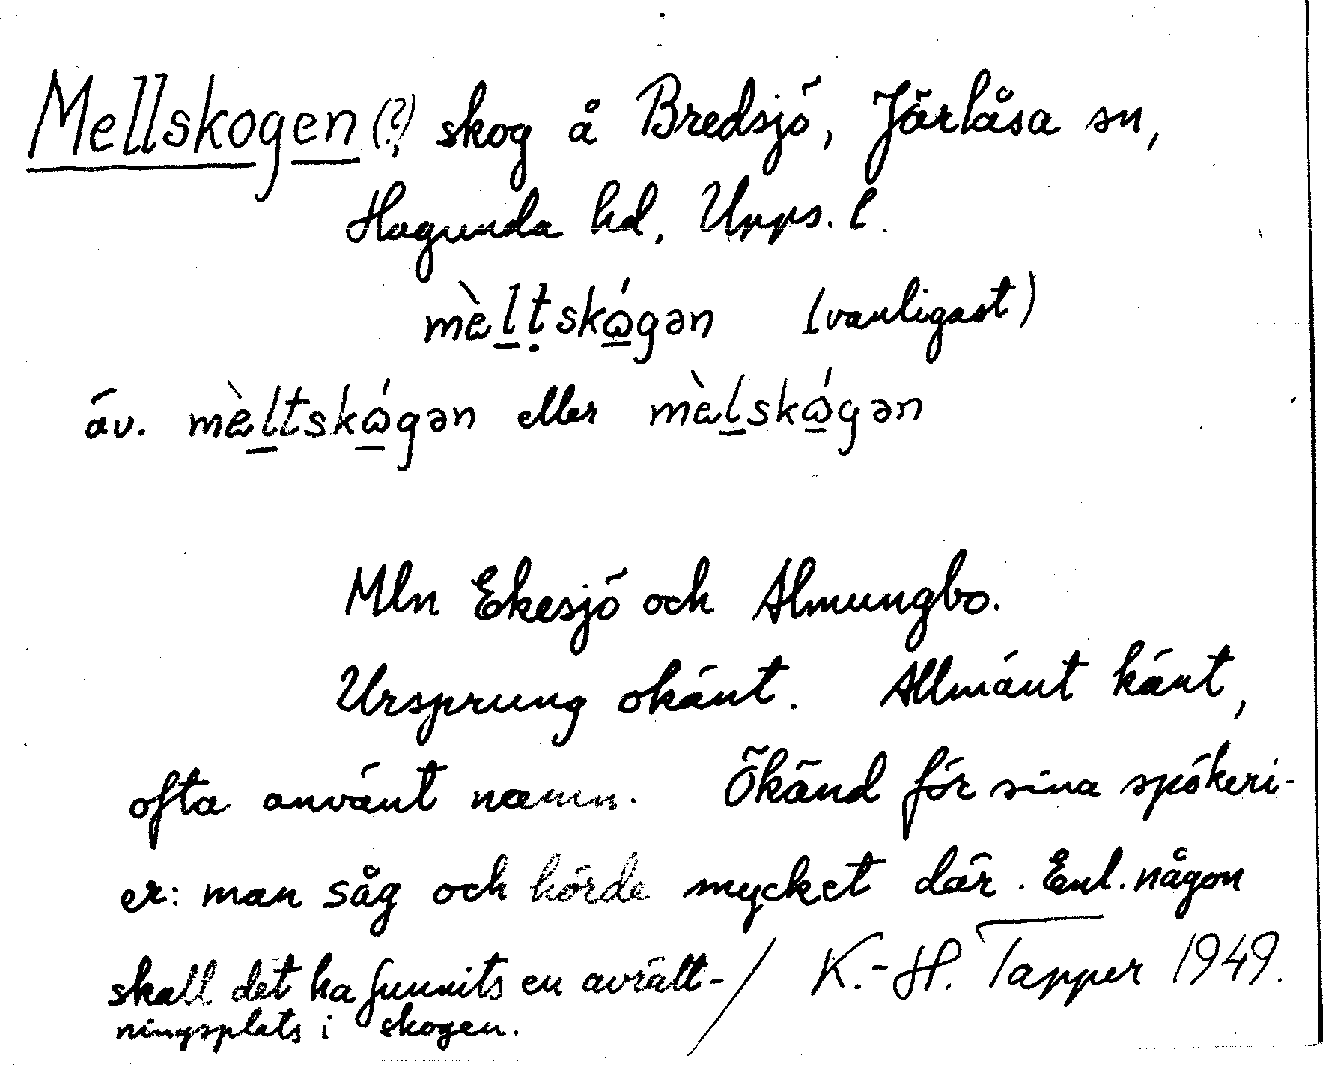 Mellskogen (?) skog å Bredsjö, Järlåsa sn,
Hagunda hd, Upps. l.
mèl̲ṭskώ̲gən (vanligast)
äv. mèl̲tskώ̲gən eller mèl̲skώ̲gən
Mln Ekesjö och Almungbo.
Ursprung okänt. Allmänt känt,
ofta använt namn. Ökänd för sina spökeri-
er: man såg och hörde mycket där. Enl. någon
skall det ha funnits en avrätt-
ningsplats i skogen.
/ K.-H. Tapper 1949.